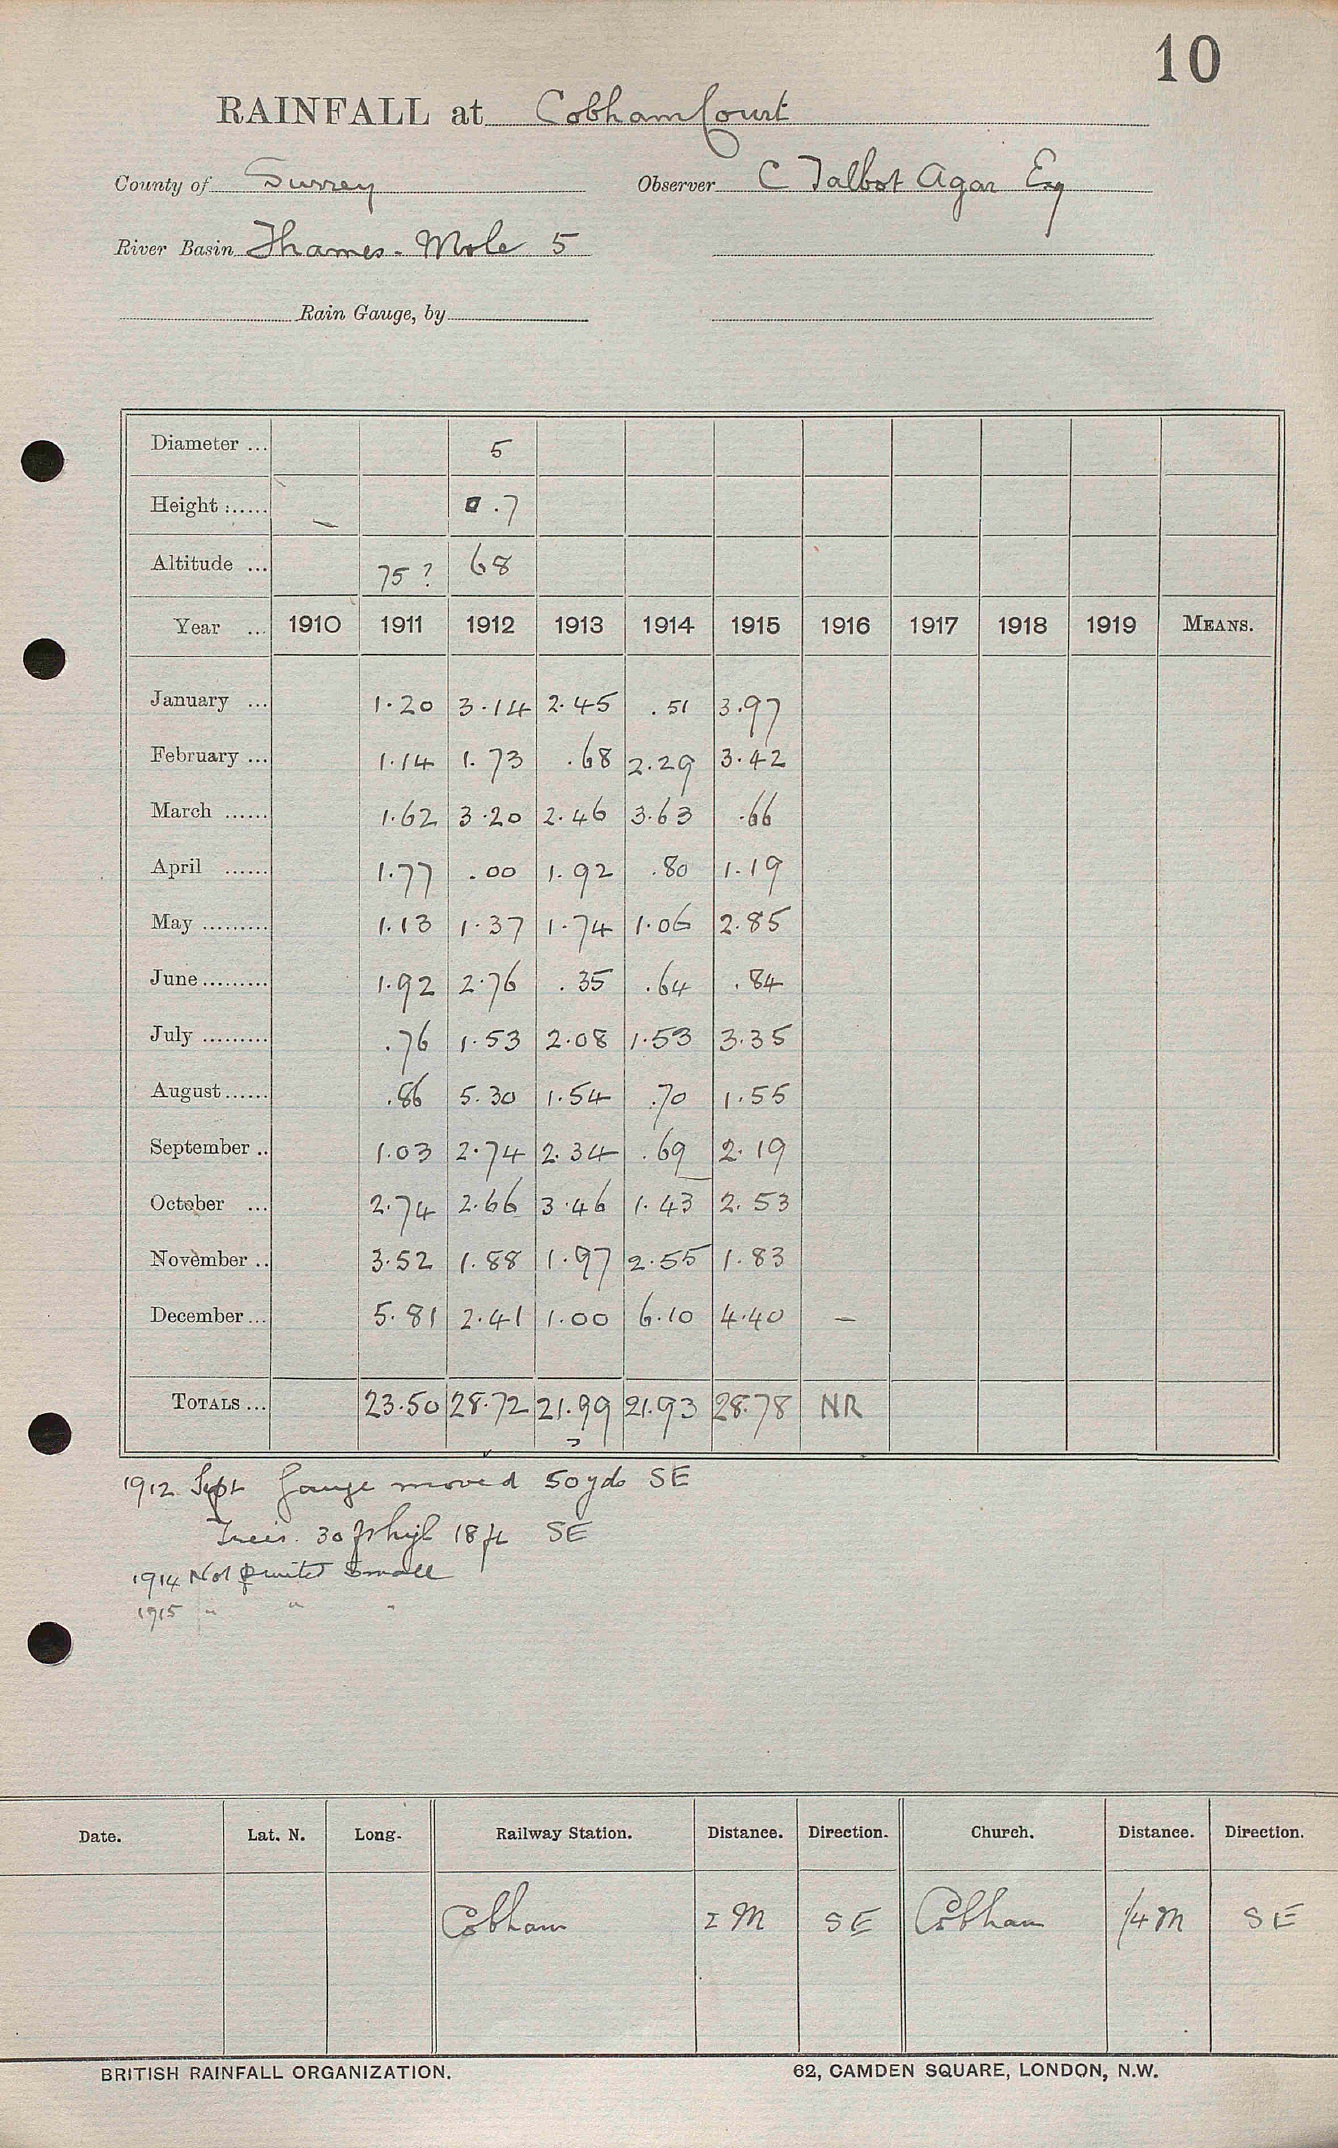 10
RAINFALL at Cobham Court
County of Surrey Observer C Talbot Agar Esq
River Basin Thames - Mole 5
Rain Gauge, by
Diameter ... 5
Height ...... 0 .7
Altitude ... 75 ? 68
Year ... 1910 1911 1912 1913 1914 1915 1916 1917 1918 1919 MEANS.
January ... 1.20 3.14 2.45 .51 3.97
February ... 1.14 1.73 .68 2.29 3.42
March ...... 1.62 3.20 2.46 3.63 .66
April ...... 1.77 .00 1.92 .80 1.19
May ......... 1.13 1.37 1.74 1.06 2.85
June ......... 1.92 2.76 .35 .64 .84
July ......... .76 1.53 2.08 1.53 3.35
August ...... .86 5.30 1.54 .70 1.55
September .. 1.03 2.74 2.34 .69 2.19
October ... 2.74 2.66 3.46 1.43 2.53
November .. 3.52 1.88 1.97 2.55 1.83
December ... 5.81 2.41 1.00 6.10 4.40 —
TOTALS ... 23.50 28.72 21.99 21.93 28.78 NR
?
1912 Sept Gauge moved 50 yds SE
Trees. 30 ft high 18 ft SE
1914 Not printed small
1915 " " "
Date. Lat. N. Long. Railway Station. Distance. Direction. Church. Distance. Direction.
Cobham 2 M SE Cobham 1/4 M SE
BRITISH RAINFALL ORGANIZATION. 62, CAMDEN SQUARE, LONDON, N.W.